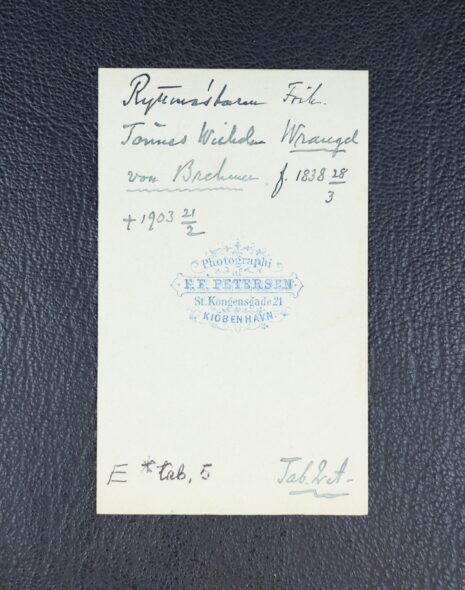 Ryttmästaren Frih.
Tönnes Wilhelm Wrangel
von Brehmer f. 1838 28/3
+ 1903 21/2
Photographi
af
F.F. PETERSEN
St. Kongensgade 21
KIÖBENHAVN.
E * tab. 5
Tab. 2 A -